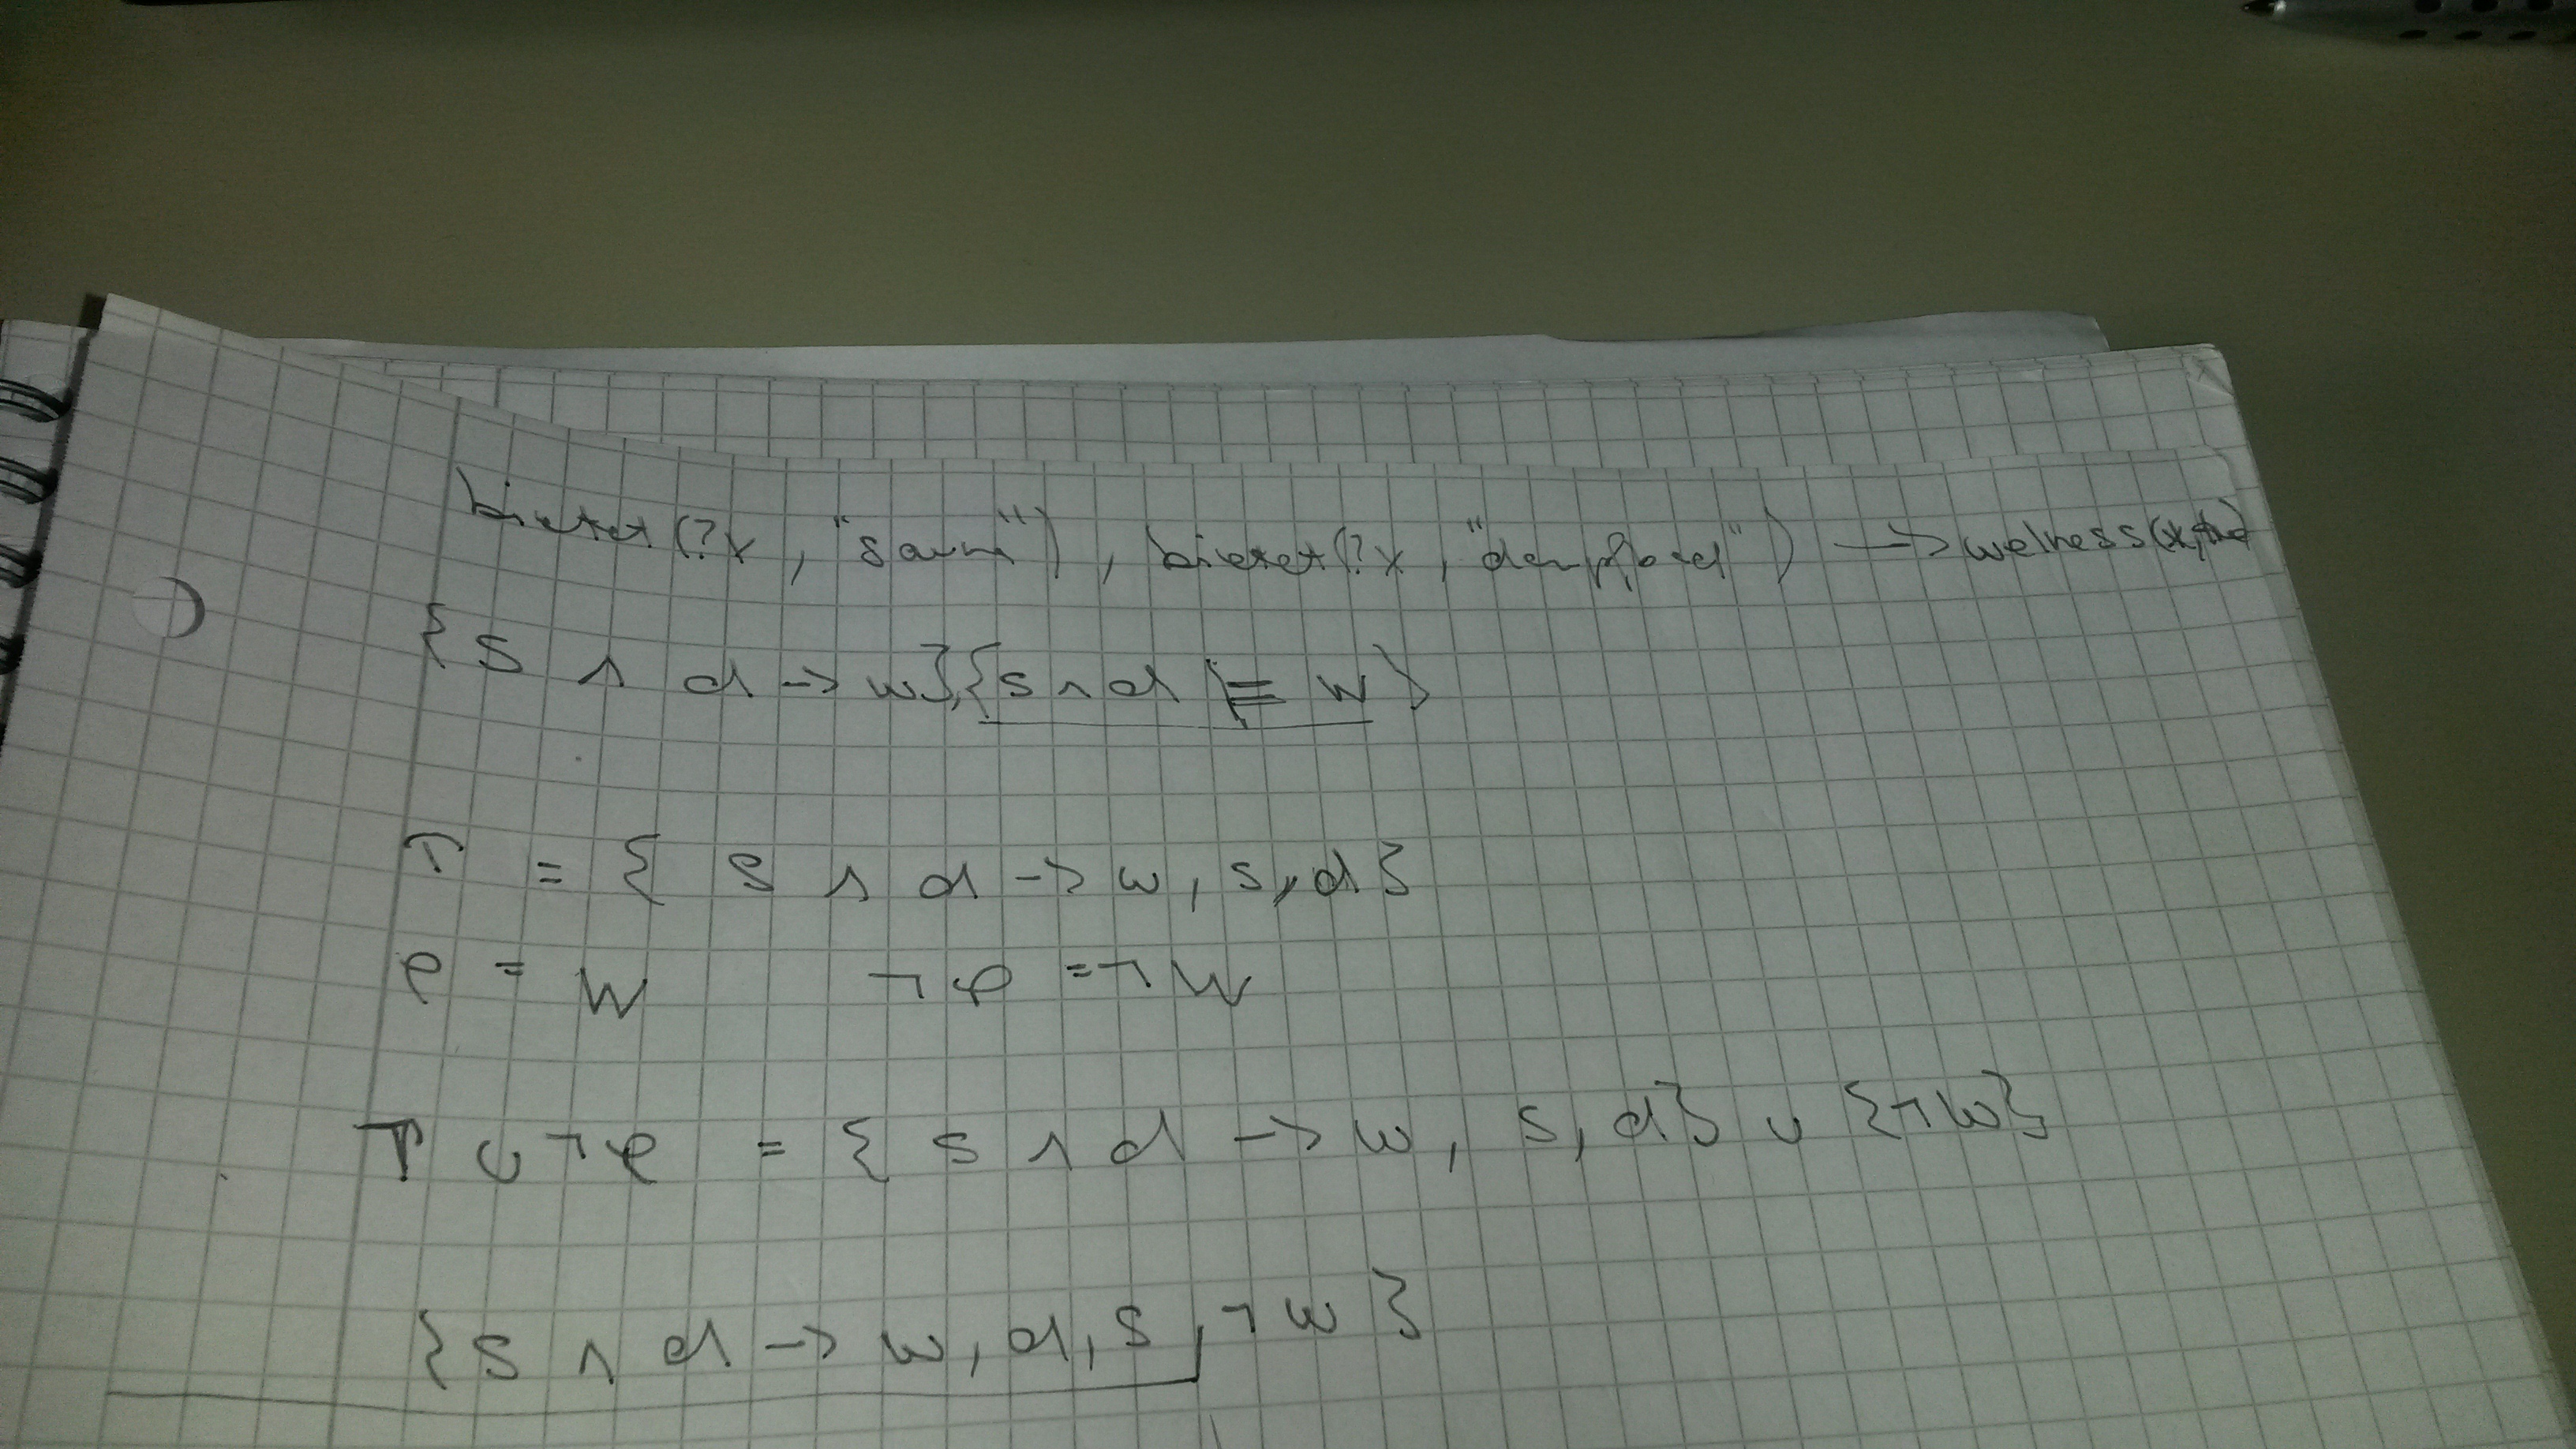 bietet(?x, "sauna"), bietet(?x, "dampfbad") → welness(x,
{s ∧ d → w},{s ∧ d ⊨ w}
T = {s ∧ d → w, s, d}
φ = W ¬φ = ¬W
T ∪ ¬φ = {s ∧ d → w, s, d} ∪ {¬w}
{s ∧ d → w, d, s, ¬w}